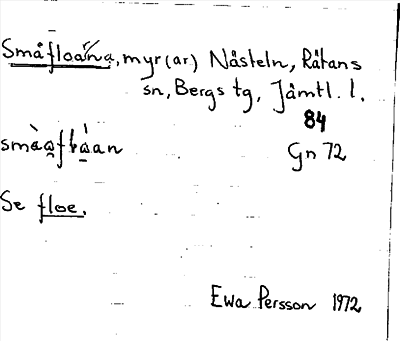 Småfloarna, myr(ar) Nästeln, Rätans
sn, Bergs tg, Jämtl. l.
84
Gn 72
Se floe.
Ewa Persson 1972